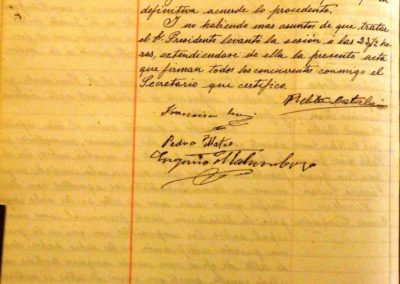 definitiva acuerde lo procedente.
Y no habiendo mas asuntos de que tratar
el Sr. Presidente levantó la sesión a las 23½ ho-
ras, extendiendose de ella la presente acta
que firman todos los concurrentes conmigo el
Secretario que certifico.
Francisco
Pedro
Eugenio